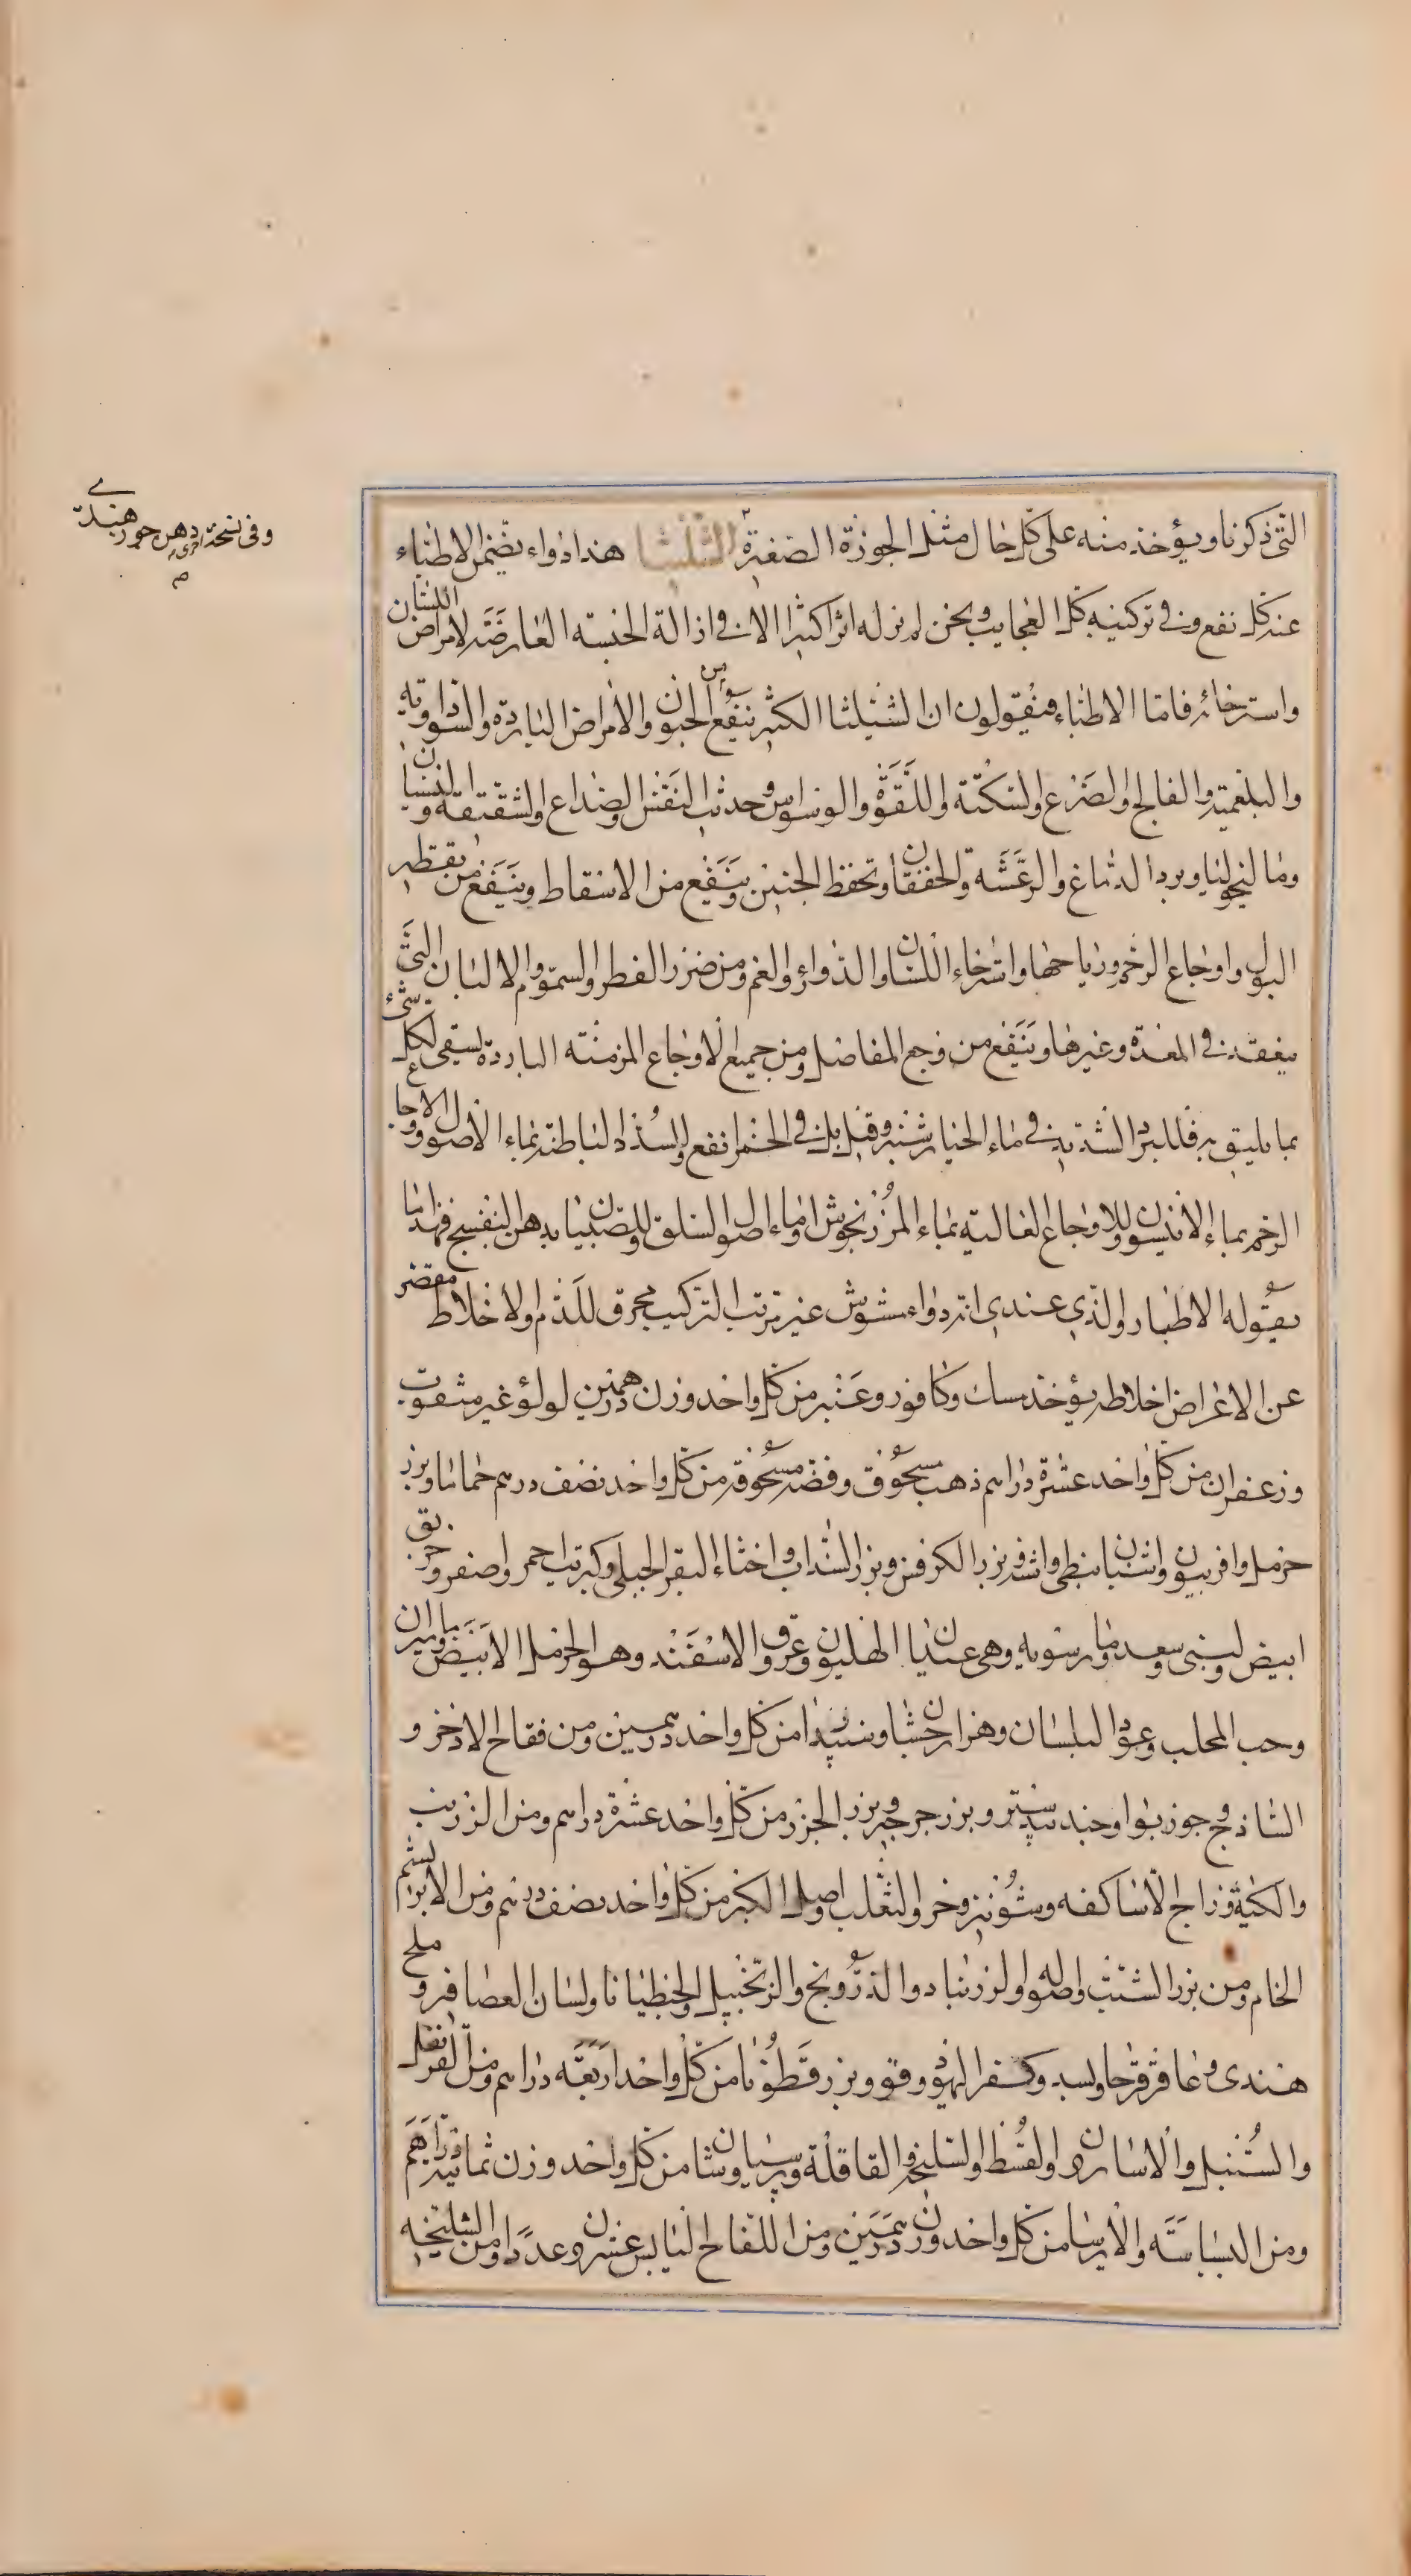 التى ذكرنا ويؤخذ منه على كل حال مثل الجوزة الصغيرة الشليثا هذا دواء يضمن الاطباء
عنه كل نفع وفى تركيبه كل العجايب ونحن لم نر له اثرا كثيرا الا فى ازالة الحبسه العارضة لامراض اللسان
واسترخائه فاما الاطباء فيقولون ان الشيليثا الكثير ينفع من الجنون والامراض الباردة والسوداويه
والبلغمية والفالج والصرع والسكتة واللقوة والوسواس وحديث النفس والصداع والشقيقة والنسيان
وماليخوليا وبرد الدماغ والرعشه والخفقان وتحفظ الجنين وينفع من الاسقاط وينفع من تقطير
البول واوجاع الرحم ورياحها واسترخاء اللسان والدوار والغم ومن ضرر الفطر والسموم والالبان التى
ينعقد فى المعدة وغيرها وينفع من وجع المفاصل ومن جميع الاوجاع المزمنة الباردة يسقى لكل شىء
بما يليق به فللبرد الشديد فى ماء الخيار شنبر وقيل بل فى الخمر انفع وللسدد الباطنة بماء الاصول ولاوجاع
الرحم بماء الانيسون وللاوجاع الغالبة بماء المرزنجوش او ماء اصول السلق وللصبيان بدهن البنفسج فهذا ما
يقوله الاطباء والذى عندى انه دواء مشوش غير مرتب التركيب محرق للدم والاخلاط مقصر
عن الاغراض اخلاطه يؤخذ مسك وكافور وعنبر من كل واحد وزن درهمين لولؤ غير مثقوب
وزعفران من كل واحد عشرة دراهم ذهب مسحوق وفضة مسحوقة من كل واحد نصف درهم حماما وبزر
حرمل وافربيون واشنان نبطى واشنه وبزر الكرفس وبزر السداب واخثاء البقر الجبلى وكبريت احمر واصفر وخربق
ابيض ولبنى وسعد ومارشويه وهى عندنا الهليون وعروق الاسفند وهو الحرمل الابيض وماميران
وحب المحلب وعود البلسان وهزارجشان وسندا من كل واحد درهمين ومن فقاح الاذخر و
الشاذنج وجوزبوا وجندبيدستر وبزر جرجير وبزر الجزر من كل واحد عشرة دراهم ومن الزرنب
والكية وزاج الاساكفه وشونيز وخرو الثعلب واصل الكبر من كل واحد نصف درهم ومن الابريشم
الخام ومن بزر الشبث واصله والزرنباد والدرونج والزنجبيل والجنطيانا ولسان العصافير وملح
هندى وعاقرقرحا ولسبد وكفر اليهود وفو وبزر قطونا من كل واحد اربعة دراهم ومن القرنفل
والسنبل والاسارون والقسط والسليخة والقاقلة وبرسياوشان من كل واحد وزن ثمانية دراهم
ومن البسباسة والايرسا من كل واحد وزن درهمين ومن اللفاح اليابس عشرون عددا ومن الشليخه
وفى نسخة اخرى دهن جوز هندى